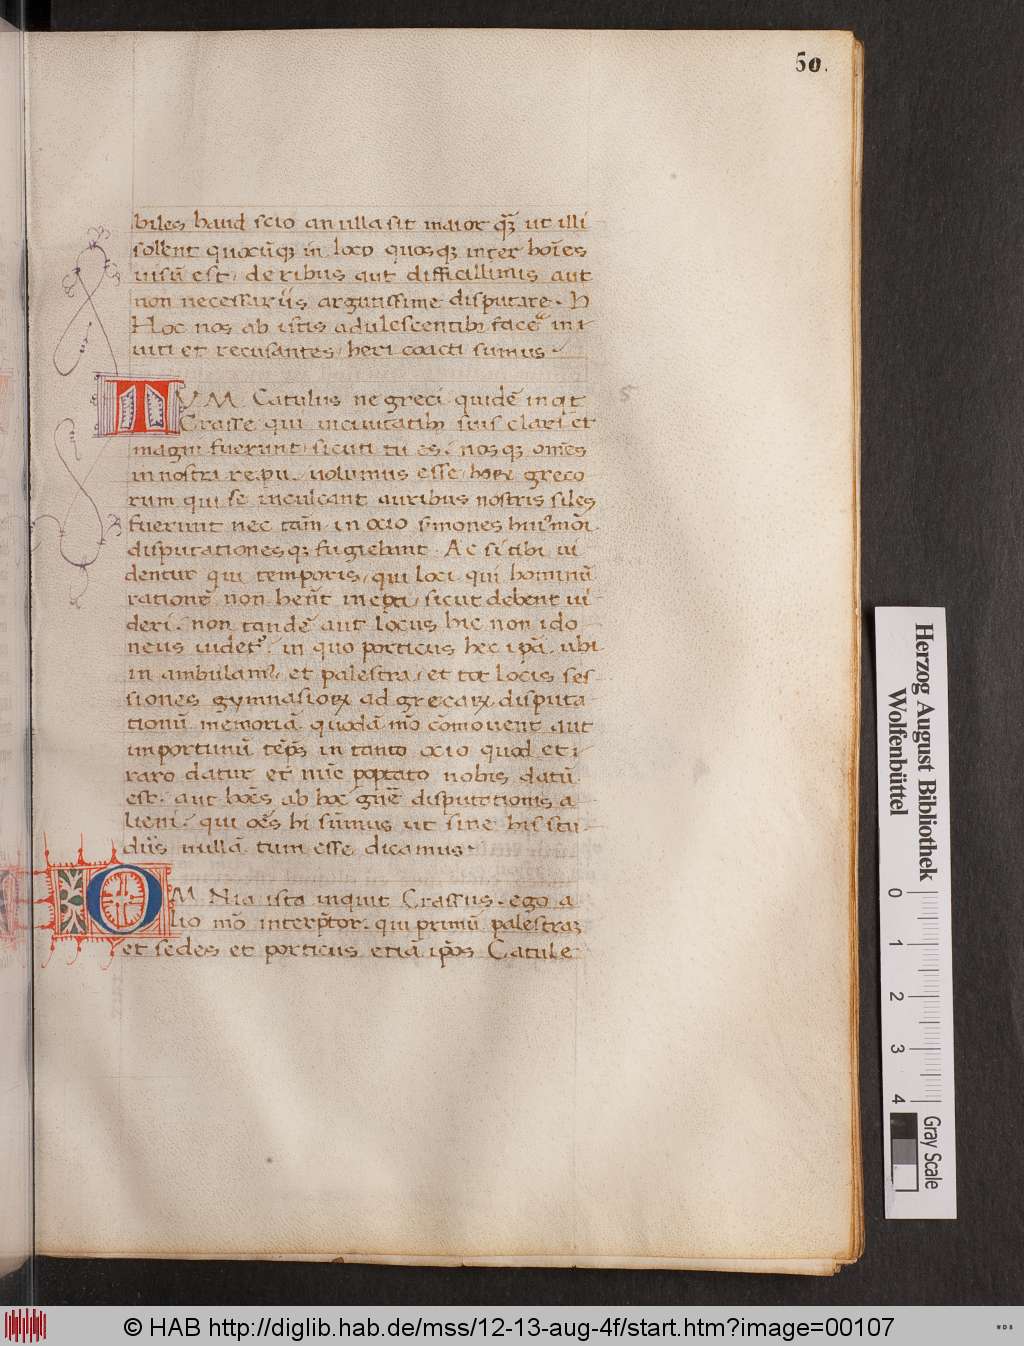 50.
biles haud scio an ulla sit maior q̃ȝ ut illi
solent quocūqȝ in loco quos qȝ inter hoīes
uisū est / de ribus aut difficillimis aut
non necessariis argutissime disputare . H
Hoc nos ab istis adulescentibȝ facē in i
uiti et recusantes / heri coacti sumus .
TVM Catulus ne greci quidē inqt
Crasse qui inciuitatibȝ suis clari et
magni fuerunt / sicuti tu es / nos qȝ omēs
in nostra re pu. uolumus esse / horꝝ greco
rum qui se inculcant auribus nostris siles
fuerunt nec tam̄ in ocio s̄mones hui᷒ mōi
disputationes qȝ fugiebant . Ac si tibi ui
dentur qui temporis / qui loci qui hominū
rationē non hen̄t inepti / sicut debent ui
deri / non tandē aut locus hic non ido
neus uidet᷒ / in quo porticus hec ip̄a ubi
in ambulam᷒ / et palestra / et tot locis ses
siones gymnasioꝝ ad grecaꝝ disputa
tionū memoriā quodā mō cōmouent aut
importunū tēp᷒ in tanto ocio quod et i
raro datur et nūc poptato nobis datū
est / aut hoēs ab hoc gn̄e disputationis a
lieni / qui oēs hi sūmus ut sine his stu
diis nullā tum esse dicamus .
OMNia ista inquit Crassus . ego a
lio mō interp̄tor . qui primū palestraȝ
et sedes et porticus etiā ip̄os Catule
5
Herzog August Bibliothek
Wolfenbüttel
0 1 2 3 4
Gray Scale
© HAB http://diglib.hab.de/mss/12-13-aug-4f/start.htm?image=00107